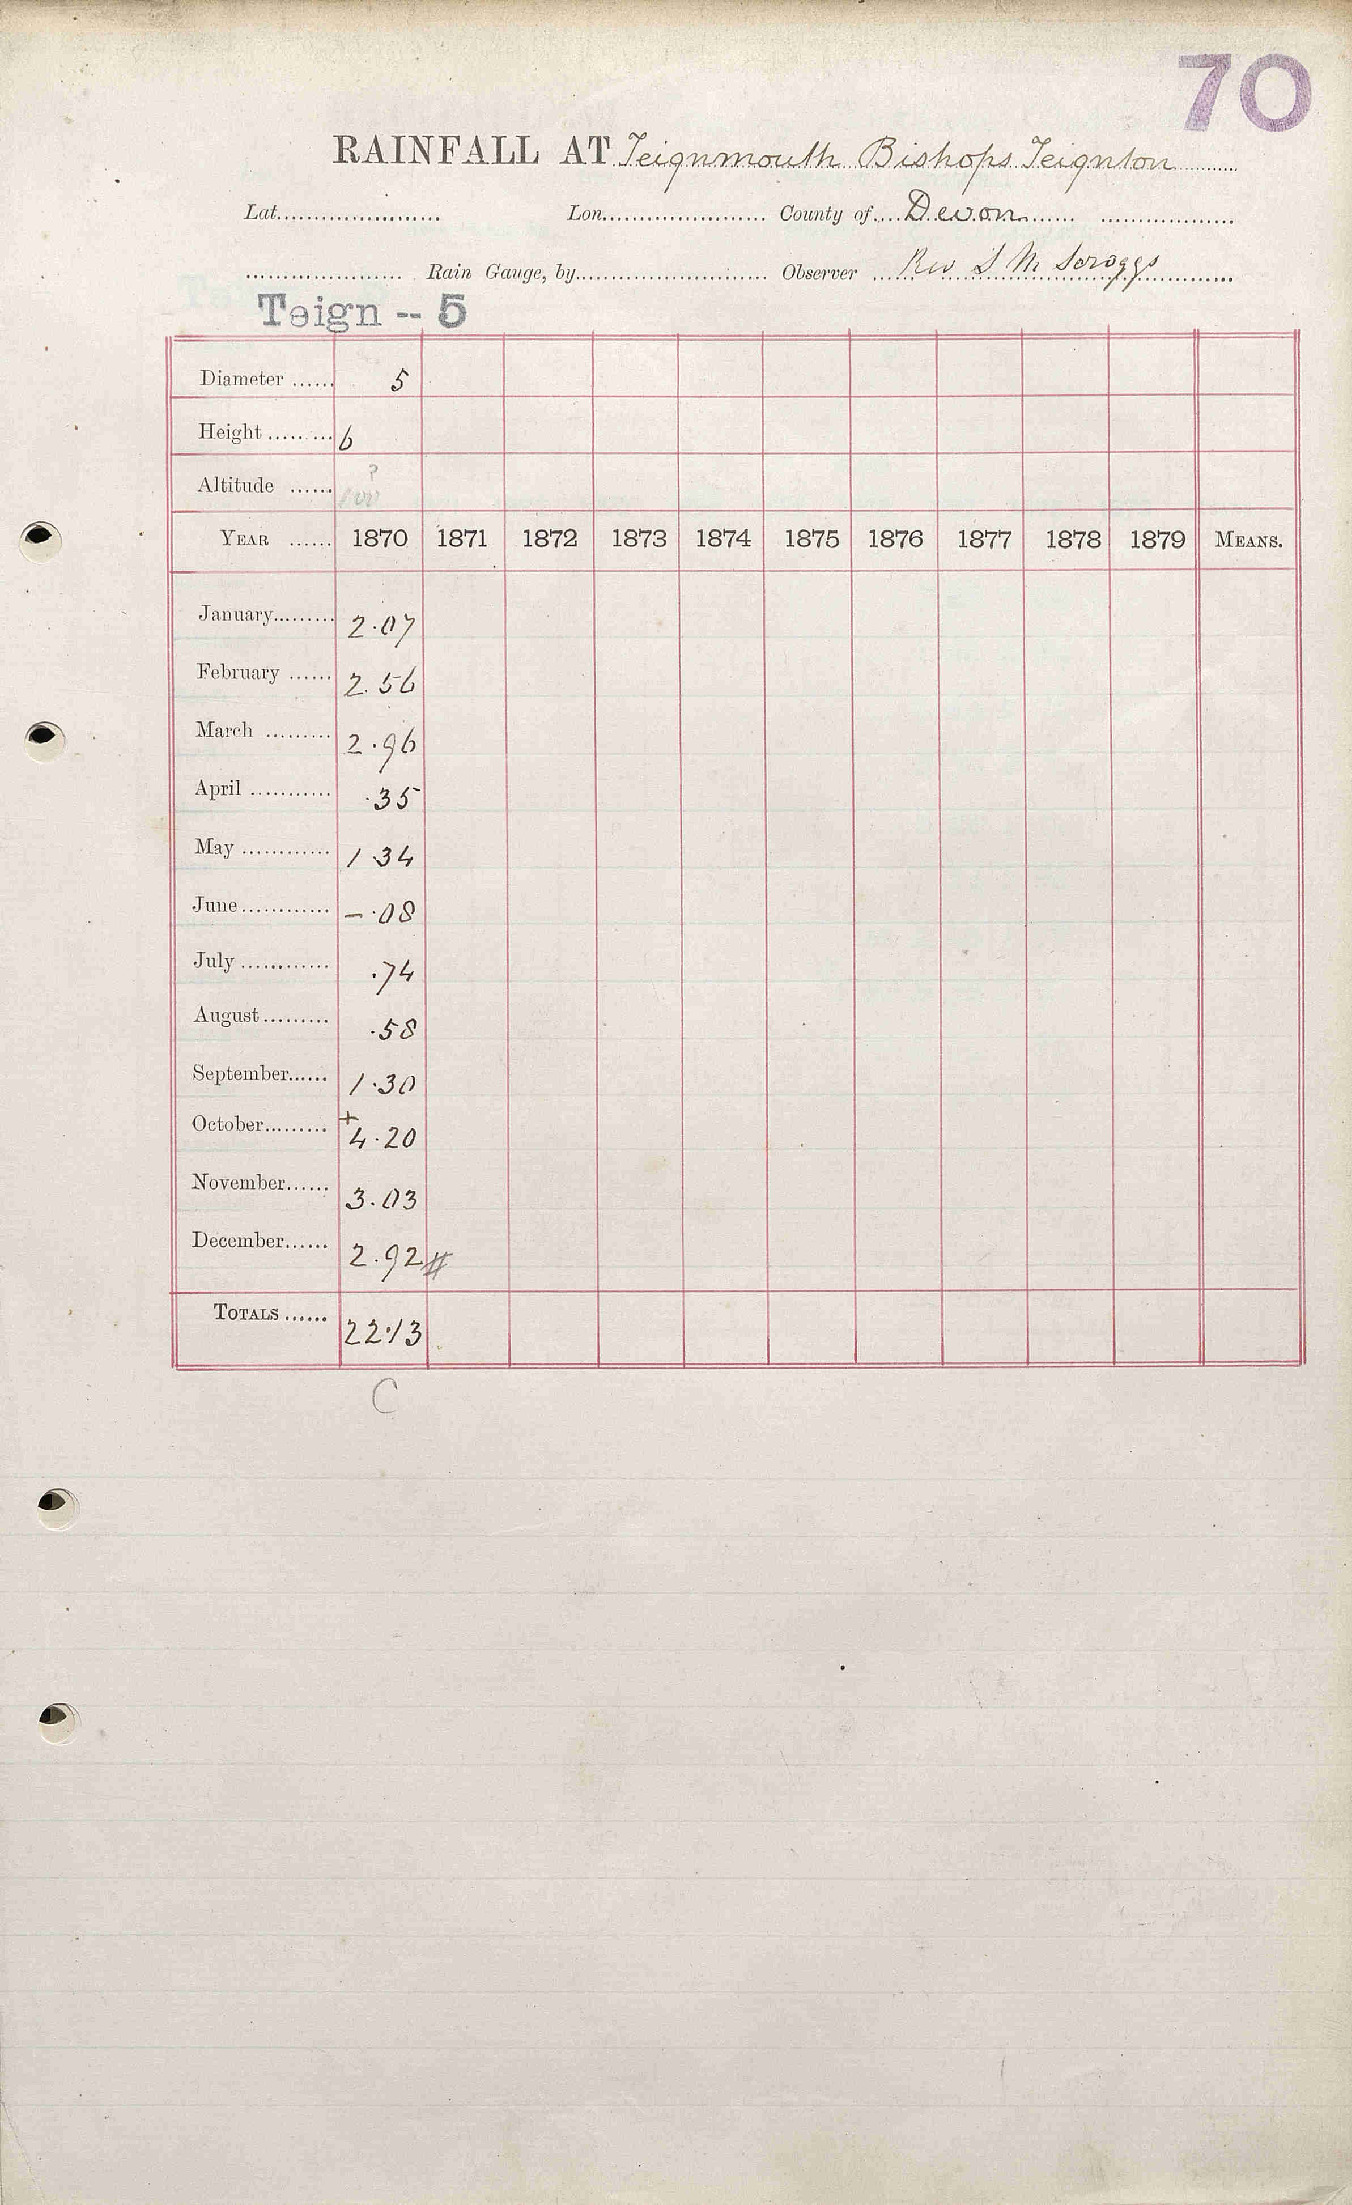 70
RAINFALL AT Teignmouth Bishops Teignton
Lat. Lon. County of Devon
Rain Gauge, by Observer Rev S M Scroggs
Teign -- 5
Diameter 5
Height 6
Altitude 100 ?
YEAR 1870 1871 1872 1873 1874 1875 1876 1877 1878 1879 MEANS.
January 2.07
February 2.56
March 2.96
April .35
May 1 34
June - .08
July .74
August .58
September 1.30
October + 4.20
November 3.03
December 2.92 #
TOTALS 22.13
C